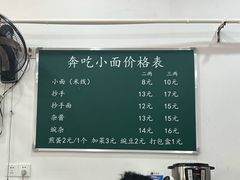 奔吃小面价格表
二两 三两
小面（米线） 8元 10元
抄手 13元 17元
抄手面 12元 15元
杂酱 13元 15元
豌杂 14元 16元
煎蛋2元/1个 加菜3元 豌豆2元 打包盒1元